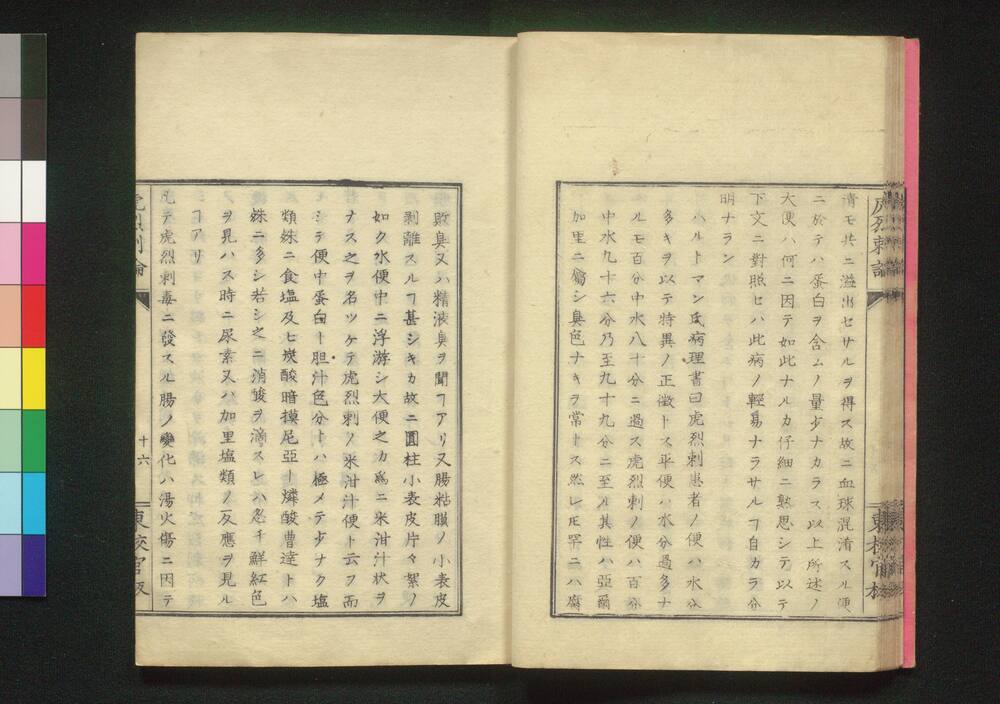 虎烈剌論
東校官板
清モ共ニ溢出セサルヲ得ス故ニ血球混淆スル便
ニ於テハ蛋白ヲ含ムノ量少ナカラス以上所述ノ
大便ハ何ニ因テ如此ナルカ仔細ニ熟思シテ以テ
下文ニ對照セハ此病ノ輕易ナラサルヿ自カラ分
明ナラン
ハルトマン氏病理書曰虎烈剌患者ノ便ハ水分
多キヲ以テ特異ノ正徴トス平便ハ水分過多ナ
ルモ百分中水八十分ニ過ス虎烈剌ノ便ハ百分
中水九十六分乃至九十九分ニ至ル其性ハ亞爾
加里ニ屬シ臭色ナキヲ常トス然レ𪜈罕ニハ腐
敗臭又ハ精液臭ヲ聞ヿアリ又腸粘膜ノ小表皮
剥離スルヿ甚シキカ故ニ圓柱小表皮片々絮ノ
如ク水便中ニ浮游シ大便之カ爲ニ米泔汁状ヲ
ナス之ヲ名ツケテ虎烈剌ノ米泔汁便ト云フ而
シテ便中蛋白ト胆汁色分トハ極メテ少ナク塩
類殊ニ食塩及ヒ炭酸暗摸尼亞ト燐酸曹達トハ
殊ニ多シ若シ之ニ消酸ヲ滴スレハ忽チ鮮紅色
ヲ見ハス時ニ尿素又ハ加里塩類ノ反應ヲ見ル
ヿアリ
凡テ虎烈剌毒ニ發スル腸ノ變化ハ湯火傷ニ因テ
虎烈剌論
十六
東校官板